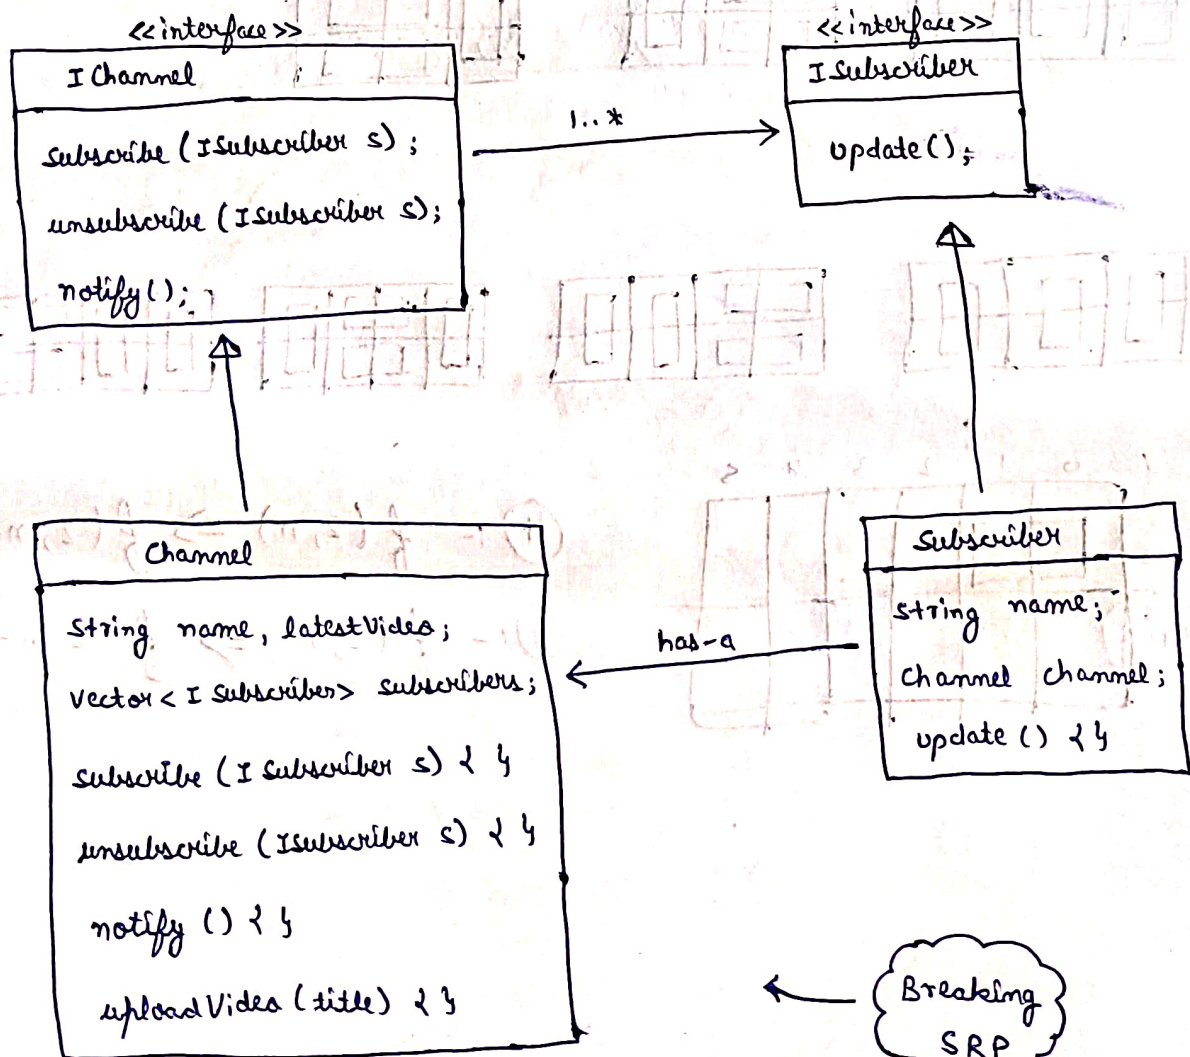 <<interface>>
IChannel
subscribe (ISubscriber s);
unsubscribe (ISubscriber s);
notify();
1..*
<<interface>>
ISubscriber
update();
Channel
string name, latestVideo;
vector<ISubscriber> subscribers;
subscribe (ISubscriber s) { }
unsubscribe (ISubscriber s) { }
notify () { }
uploadVideo (title) { }
has-a
Subscriber
string name;
Channel channel;
update () { }
Breaking
SRP